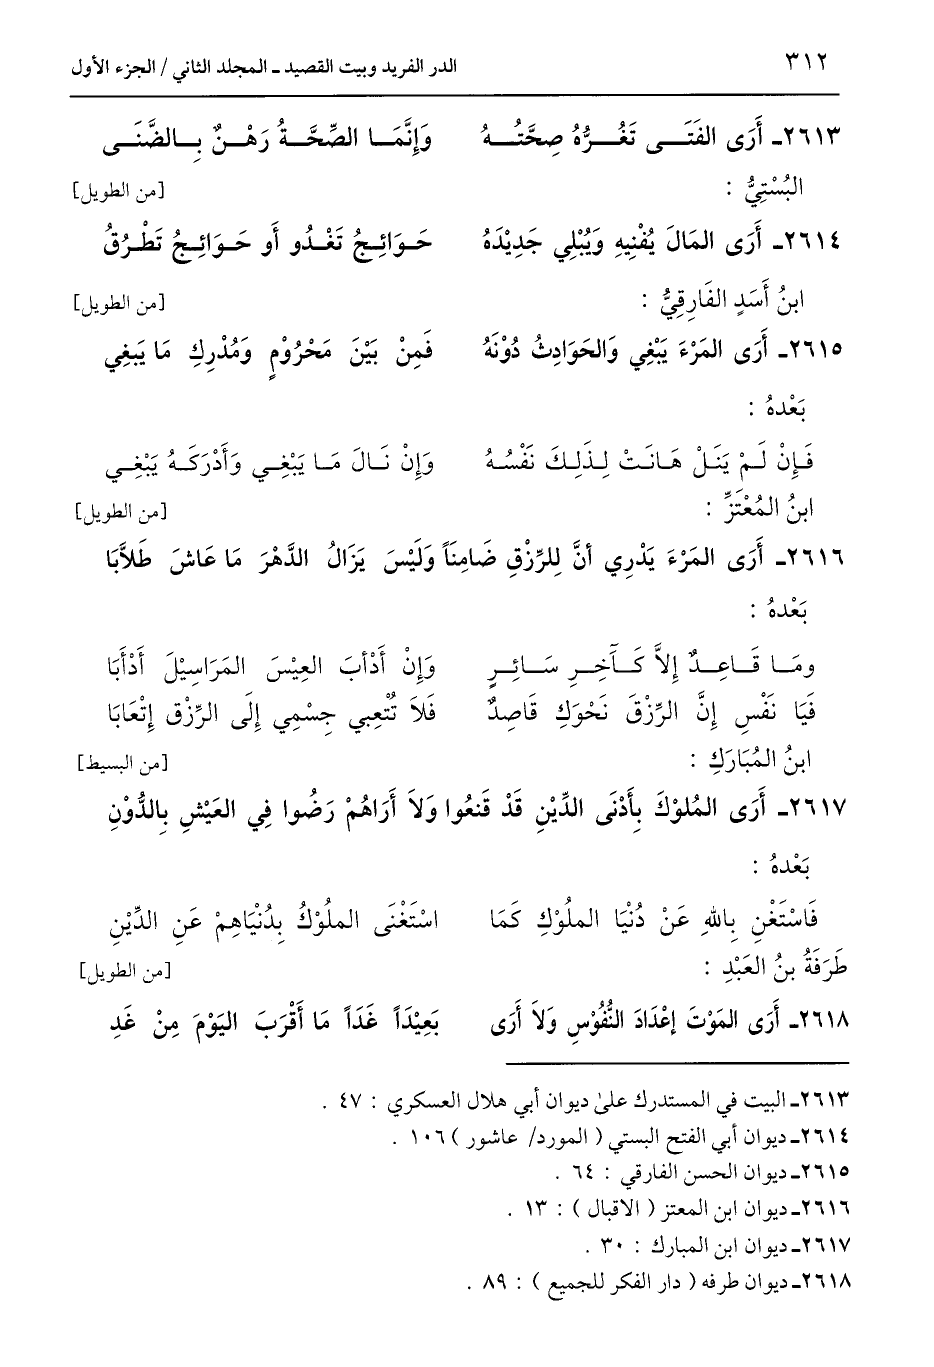 ٣١٢ الدر الفريد وبيت القصيد ـ المجلد الثاني / الجزء الأول
٢٦١٣ـ أَرَى الفَتَـــى تَغُـــرُّهُ صِحَّتُـــهُ وَإِنَّمَـــا الصِّحَّـــةُ رَهْـــنٌ بِـــالضَّنَـــى
البُسْتِيُّ : [من الطويل]
٢٦١٤ـ أَرَى المَالَ يُفْنِيهِ وَيُبْلِي جَدِيْدَهُ حَـوَائِـجُ تَغْـدُو أَو حَـوَائِـجُ تَطْـرُقُ
ابنُ أَسَدٍ الفَارِقِيُّ : [من الطويل]
٢٦١٥ـ أَرَى المَرْءَ يَبْغِي وَالحَوَادِثُ دُوْنَهُ فَمِنْ بَيْنَ مَحْرُوْمٍ وَمُدْرِكِ مَا يَبغِي
بَعْدهُ :
فَـإِنْ لَـمْ يَنَلْ هَـانَـتْ لِـذَلِـكَ نَفْسُـهُ وَإِنْ نَـالَ مَـا يَبْغِـي وَأَدْرَكَـهُ يَبْغِـي
ابنُ المُعْتَزِّ : [من الطويل]
٢٦١٦ـ أَرَى المَرْءَ يَدْرِي أنَّ لِلرِّزْقِ ضَامِنَاً وَلَيْسَ يَزَالُ الدَّهْرَ مَا عَاشَ طَلاَّبَا
بَعْدهُ :
ومَـا قَـاعِـدٌ إلاَّ كَـآخِـرِ سَـائِـرٍ وَإِنْ أَدْأبَ العِيْسَ المَرَاسِيْلَ أَدْأَبَا
فَيَا نَفْسِ إِنَّ الرِّزْقَ نَحْوَكِ قَاصِدٌ فَلاَ تُتْعِبي جِسْمِي إِلَى الرِّزْقِ إِتْعَابَا
ابنُ المُبَارَكِ : [من البسيط]
٢٦١٧ـ أَرَى المُلُوْكَ بِأَدْنَى الدِّيْنِ قَدْ قَنعُوا وَلاَ أَرَاهُمْ رَضُوا فِي العَيْشِ بِالدُّوْنِ
بَعْدهُ :
فَاسْتَغْنِ بِاللهِ عَنْ دُنْيَا الملُوْكِ كَمَا اسْتَغْنَى الملُوْكُ بِدُنْيَاهِمْ عَنِ الدِّيْنِ
طَرَفَةُ بنُ العَبْدِ : [من الطويل]
٢٦١٨ـ أَرَى المَوْتَ إعْدَادَ النُّفُوْسِ وَلاَ أَرَى بَعِيْدَاً غَدَاً مَا أَقْرَبَ اليَوْمَ مِنْ غَدِ
٢٦١٣ـ البيت في المستدرك على ديوان أبي هلال العسكري : ٤٧ .
٢٦١٤ـ ديوان أبي الفتح البستي ( المورد/ عاشور ) ١٠٦ .
٢٦١٥ـ ديوان الحسن الفارقي : ٦٤ .
٢٦١٦ـ ديوان ابن المعتز ( الاقبال ) : ١٣ .
٢٦١٧ـ ديوان ابن المبارك : ٣٠ .
٢٦١٨ـ ديوان طرفه ( دار الفكر للجميع ) : ٨٩ .